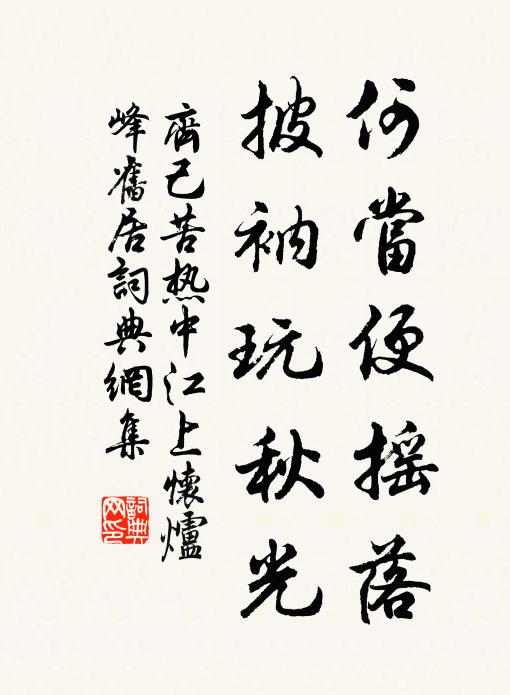 何當便摇落
披衲玩秋光
齊己苦热中江上懷爐
峰舊居詞典網集
詞典網印